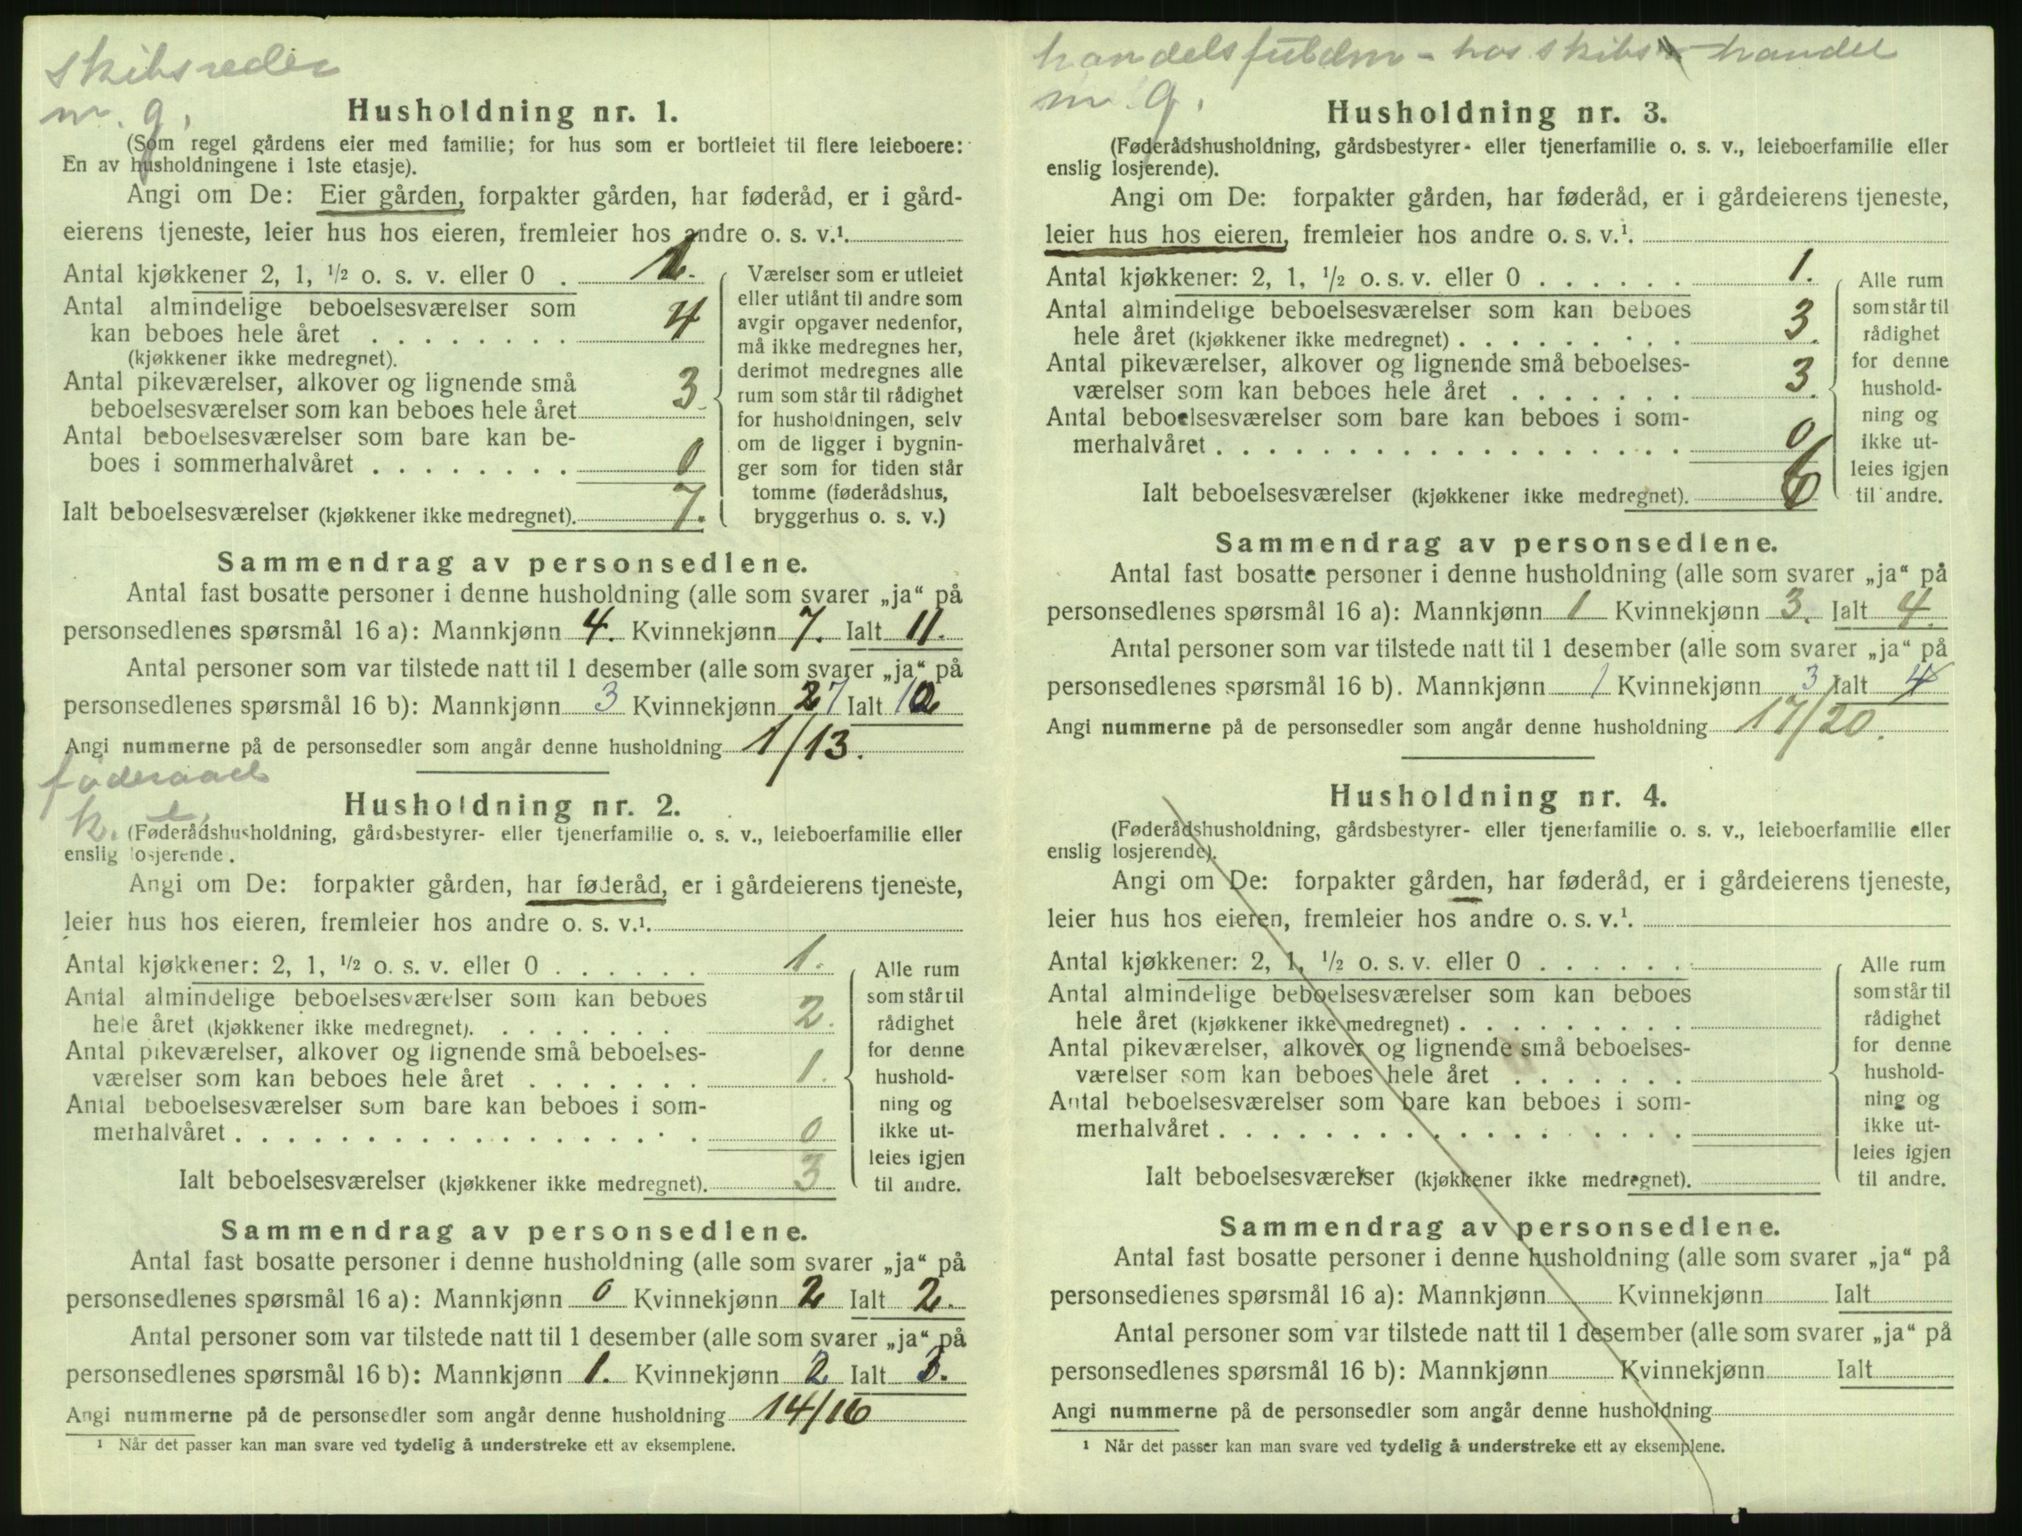 skibsreder
m. g.
Husholdning nr. 1.
(Som regel gårdens eier med familie; for hus som er bortleiet til flere leieboere:
En av husholdningene i 1ste etasje).
Angi om De: Eier gården, forpakter gården, har føderåd, er i gård-
eierens tjeneste, leier hus hos eieren, fremleier hos andre o. s. v.¹.
Antal kjøkkener 2, 1, ½ o. s. v. eller 0 . 1.
Antal almindelige beboelsesværelser som
kan beboes hele året . . . . . . . . 4
(kjøkkener ikke medregnet).
Antal pikeværelser, alkover og lignende små
beboelsesværelser som kan beboes hele året 3
Antal beboelsesværelser som bare kan be-
boes i sommerhalvåret . . . . . . . . 0
Ialt beboelsesværelser (kjøkkener ikke medregnet). 7.
Værelser som er utleiet
eller utlånt til andre som
avgir opgaver nedenfor,
må ikke medregnes her,
derimot medregnes alle
rum som står til rådighet
for husholdningen, selv
om de ligger i bygnin-
ger som for tiden står
tomme (føderådshus,
bryggerhus o. s. v.)
Sammendrag av personsedlene.
Antal fast bosatte personer i denne husholdning (alle som svarer „ja“ på
personsedlenes spørsmål 16 a): Mannkjønn 4. Kvinnekjønn 7. Ialt 11.
Antal personer som var tilstede natt til 1 desember (alle som svarer „ja“ på
personsedlenes spørsmål 16 b): Mannkjønn 3 Kvinnekjønn 7 Ialt 10
Angi nummerne på de personsedler som angår denne husholdning 1/13.
føderaad
k.
Husholdning nr. 2.
(Føderådshusholdning, gårdsbestyrer- eller tjenerfamilie o. s. v., leieboerfamilie eller
enslig losjerende.
Angi om De: forpakter gården, har føderåd, er i gårdeierens tjeneste,
leier hus hos eieren, fremleier hos andre o. s. v.¹.
Antal kjøkkener: 2, 1, ½ o. s. v. eller 0 . . . . . . 1.
Antal almindelige beboelsesværelser som kan beboes
hele året (kjøkkener ikke medregnet). . . . . . . . 2.
Antal pikeværelser, alkover og lignende små beboelses-
værelser som kan beboes hele året . . . . . . . 1.
Antal beboelsesværelser som bare kan beboes i som-
merhalvåret . . . . . . . . . . . . . . . . . . 0
Ialt beboelsesværelser (kjøkkener ikke medregnet). 3
Alle rum
som står til
rådighet
for denne
hushold-
ning og
ikke ut-
leies igjen
til andre.
Sammendrag av personsedlene.
Antal fast bosatte personer i denne husholdning (alle som svarer „ja“ på
personsedlenes spørsmål 16 a): Mannkjønn 0 Kvinnekjønn 2 Ialt 2.
Antal personer som var tilstede natt til 1 desember (alle som svarer „ja“ på
personsedlenes spørsmål 16 b): Mannkjønn 1. Kvinnekjønn 2 Ialt 3.
Angi nummerne på de personsedler som angår denne husholdning 14/16
¹ Når det passer kan man svare ved tydelig å understreke ett av eksemplene.
handelsfuldm - hos skibs - handel
m g.
Husholdning nr. 3.
(Føderådshusholdning, gårdsbestyrer- eller tjenerfamilie o. s. v., leieboerfamilie eller
enslig losjerende).
Angi om De: forpakter gården, har føderåd, er i gårdeierens tjeneste,
leier hus hos eieren, fremleier hos andre o. s. v.¹.
Antal kjøkkener: 2, 1, ½ o. s. v. eller 0 . . . . . . 1.
Antal almindelige beboelsesværelser som kan beboes
hele året (kjøkkener ikke medregnet) . . . . . . . . . 3.
Antal pikeværelser, alkover og lignende små beboelses-
værelser som kan beboes hele året . . . . . . . 3.
Antal beboelsesværelser som bare kan beboes i som-
merhalvåret . . . . . . . . . . . . . . . . . . 0
Ialt beboelsesværelser (kjøkkener ikke medregnet). 6
Alle rum
som står til
rådighet
for denne
hushold-
ning og
ikke ut-
leies igjen
til andre.
Sammendrag av personsedlene.
Antal fast bosatte personer i denne husholdning (alle som svarer „ja“ på
personsedlenes spørsmål 16 a): Mannkjønn 1 Kvinnekjønn 3. Ialt 4.
Antal personer som var tilstede natt til 1 desember (alle som svarer „ja“ på
personsedlenes spørsmål 16 b). Mannkjønn 1 Kvinnekjønn 3 Ialt 4
Angi nummerne på de personsedler som angår denne husholdning 17/20.
Husholdning nr. 4.
(Føderådshusholdning, gårdsbestyrer- eller tjenerfamilie o. s. v., leieboerfamilie eller
enslig losjerende).
Angi om De: forpakter gården, har føderåd, er i gårdeierens tjeneste,
leier hus hos eieren, fremleier hos andre o. s. v.¹.
Antal kjøkkener: 2, 1, ½ o. s. v. eller 0 . . . . . .
Antal almindelige beboelsesværelser som kan beboes
hele året (kjøkkener ikke medregnet) . . . . . . . . .
Antal pikeværelser, alkover og lignende små beboelses-
værelser som kan beboes hele året . . . . . . .
Antal beboelsesværelser som bare kan beboes i som-
merhalvåret . . . . . . . . . . . . . . . . . .
Ialt beboelsesværelser (kjøkkener ikke medregnet).
Alle rum
som står til
rådighet
for denne
hushold-
ning og
ikke ut-
leies igjen
til andre.
Sammendrag av personsedlene.
Antal fast bosatte personer i denne husholdning (alle som svarer „ja“ på
personsedlenes spørsmål 16 a): Mannkjønn Kvinnekjønn Ialt
Antal personer som var tilstede natt til 1 desember (alle som svarer „ja“ på
personsedlenes spørsmål 16 b): Mannkjønn Kvinnekjønn Ialt
Angi nummerne på de personsedler som angår denne husholdning
¹ Når det passer kan man svare ved tydelig å understreke ett av eksemplene.